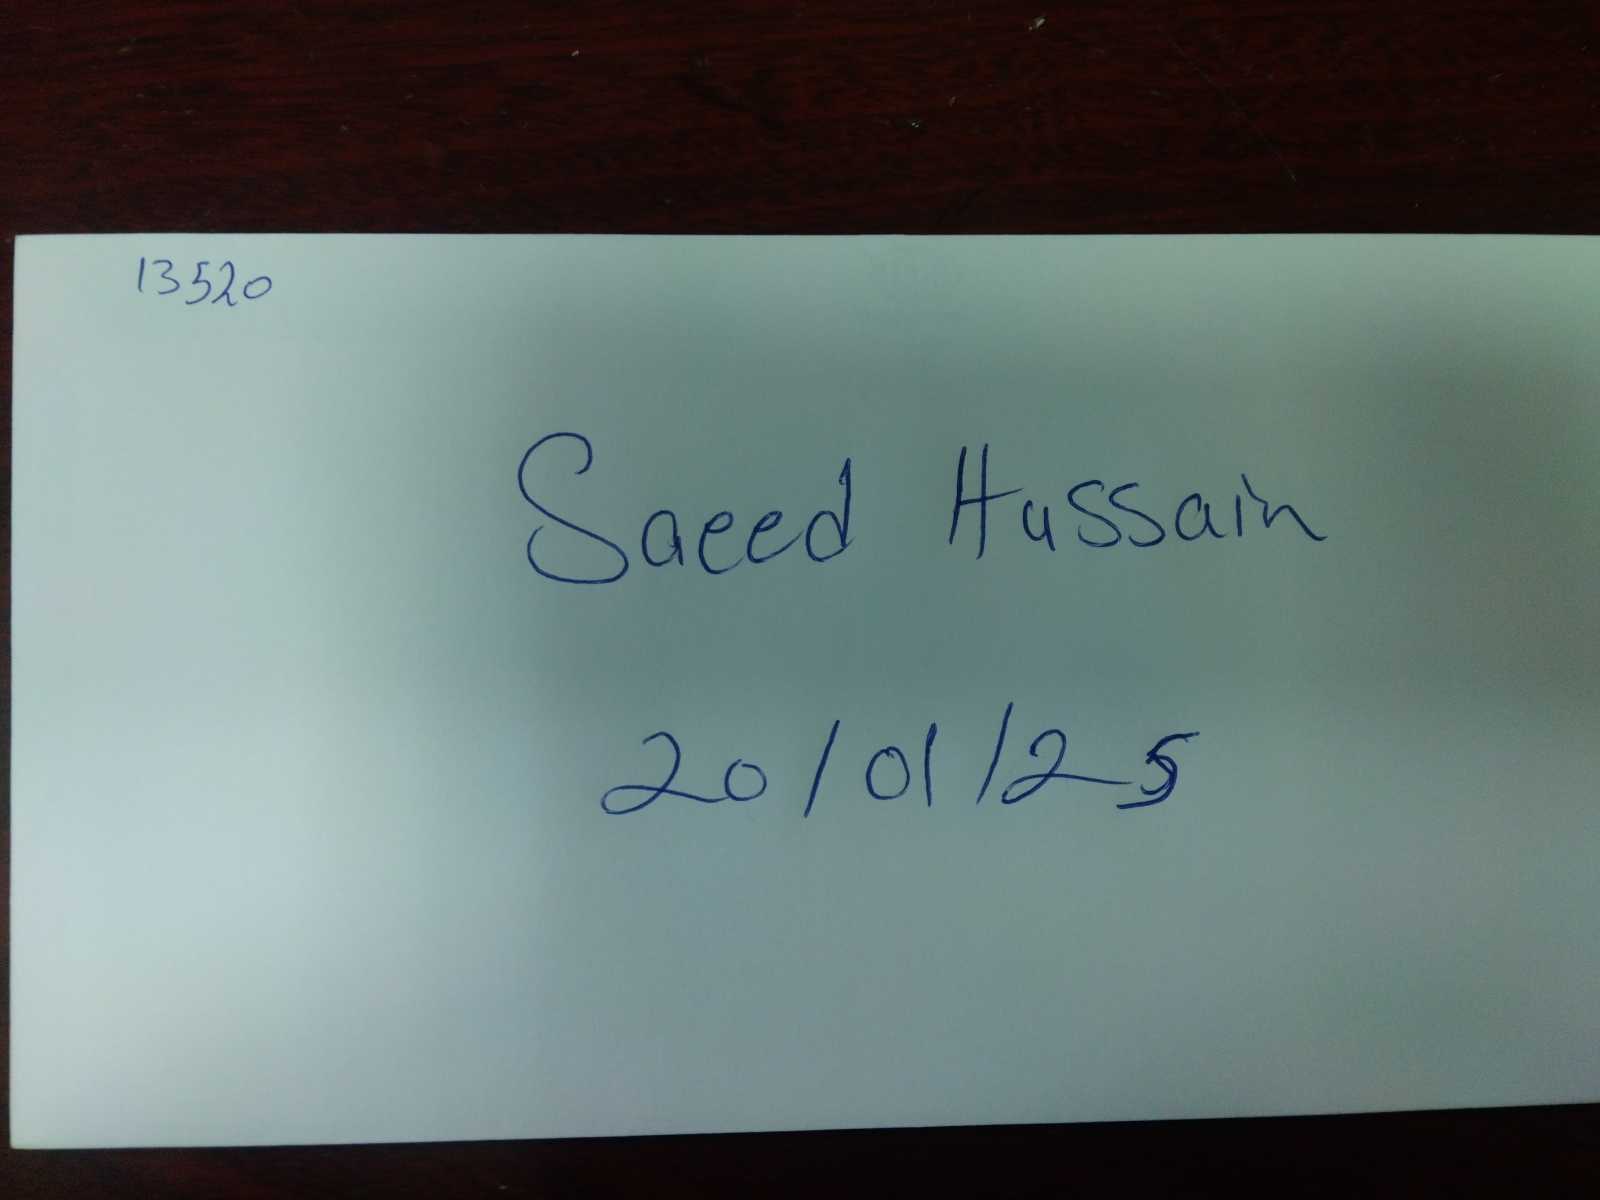 13520
Saeed Hussain
20/01/25